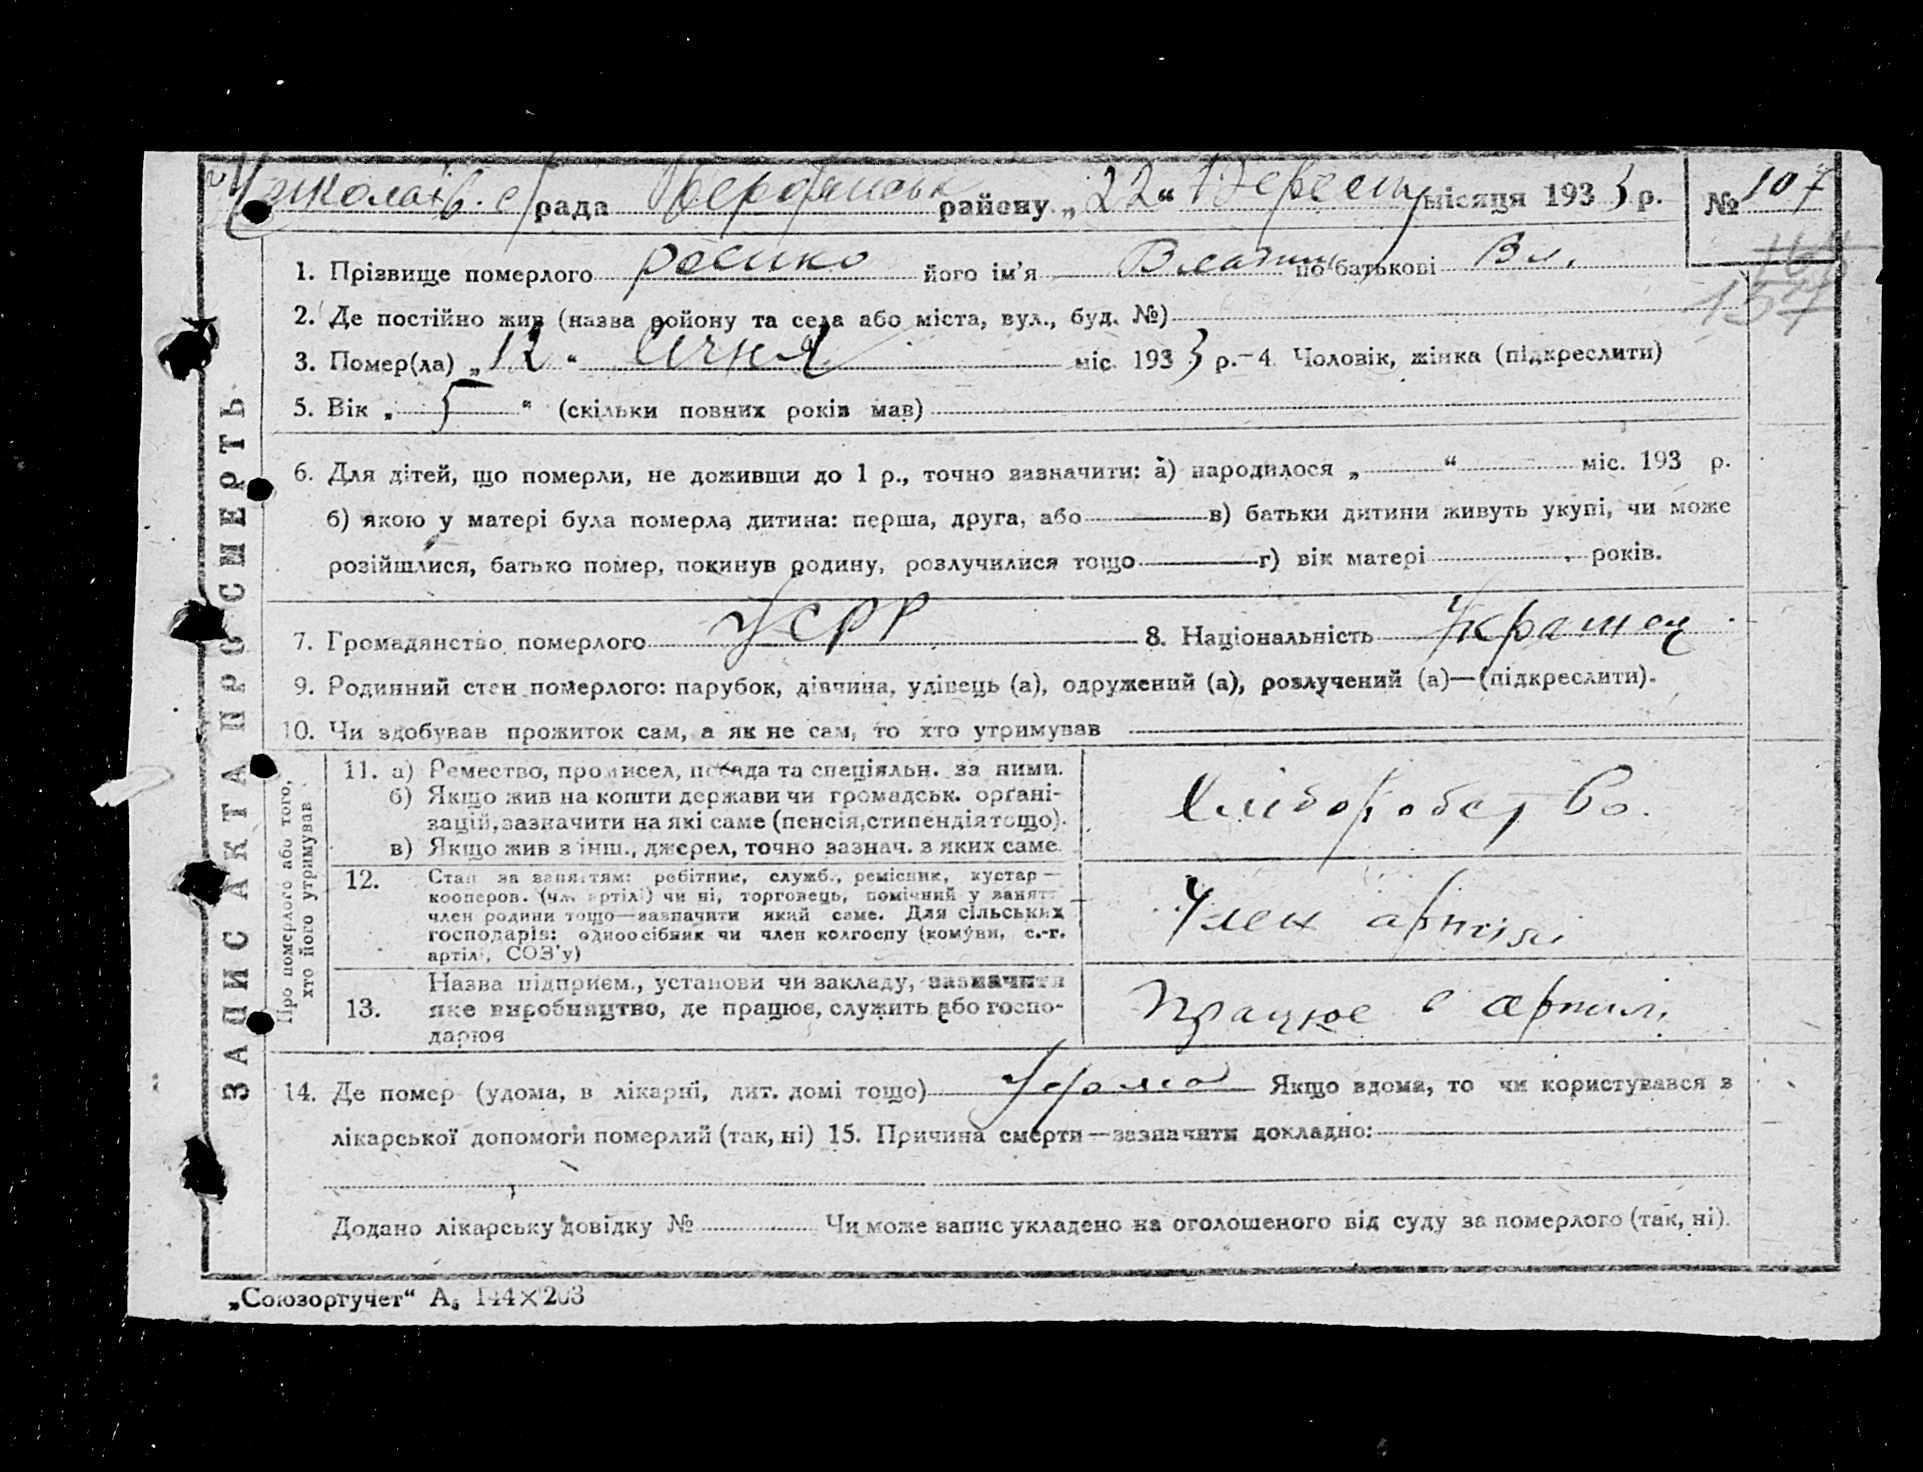 Николаів. с/рада Бердянськ району „22“ Вересня місяця 1933 р. № 107
157
1. Прізвище померлого його ім'я по батькові Вл.
2. Де постійно жив (назва району та села або міста, вул., буд. №)
3. Помер(ла) „12“ Січня міс. 1933 р.—4. Чоловік, жінка (підкреслити)
5. Вік „5“ (скільки повних років мав)
6. Для дітей, що померли, не доживши до 1 р., точно зазначити: а) народилося „ “ міс. 193 р.
б) якою у матері була померла дитина: перша, друга, або в) батьки дитини живуть укупі, чи може
розійшлися, батько помер, покинув родину, розлучилися тощо г) вік матері років.
7. Громадянство померлого УСРР 8. Національність
9. Родинний стан померлого: парубок, дівчина, удівець (а), одружений (а), розлучений (а)—(підкреслити).
10. Чи здобував прожиток сам, а як не сам, то хто утримував
ЗАПИС АКТА ПРО СМЕРТЬ
Про померлого або того, хто його утримував
11. а) Ремество, промисел, посада та спеціяльн. за ними.
б) Якщо жив на кошти держави чи громадськ. органі-
зацій, зазначити на які саме (пенсія, стипендія тощо).
в) Якщо жив з інш., джерел, точно зазнач. з яких саме.
Хліборобство.
12. Стан за заняттям: робітник, служб., ремісник, кустар—
кооперов. (чл. артілі) чи ні, торговець, помічний у занятт.
член родини тощо—зазначити який саме. Для сільських
господарів: одноосібник чи член колгоспу (комуни, с.-г.
артілі, СОЗ'у)
Член артілі
13. Назва підприєм., установи чи закладу, зазначити
яке виробництво, де працює, служить або госпо-
дарює
Працює в артілі
14. Де помер (удома, в лікарні, дит. домі тощо) Удома Якщо вдома, то чи користувався з
лікарської допомоги померлий (так, ні) 15. Причина смерти—зазначити докладно:
Додано лікарську довідку № Чи може запис укладено на оголошеного від суду за померлого (так, ні).
„Союзоргучет“ А₅ 144×203